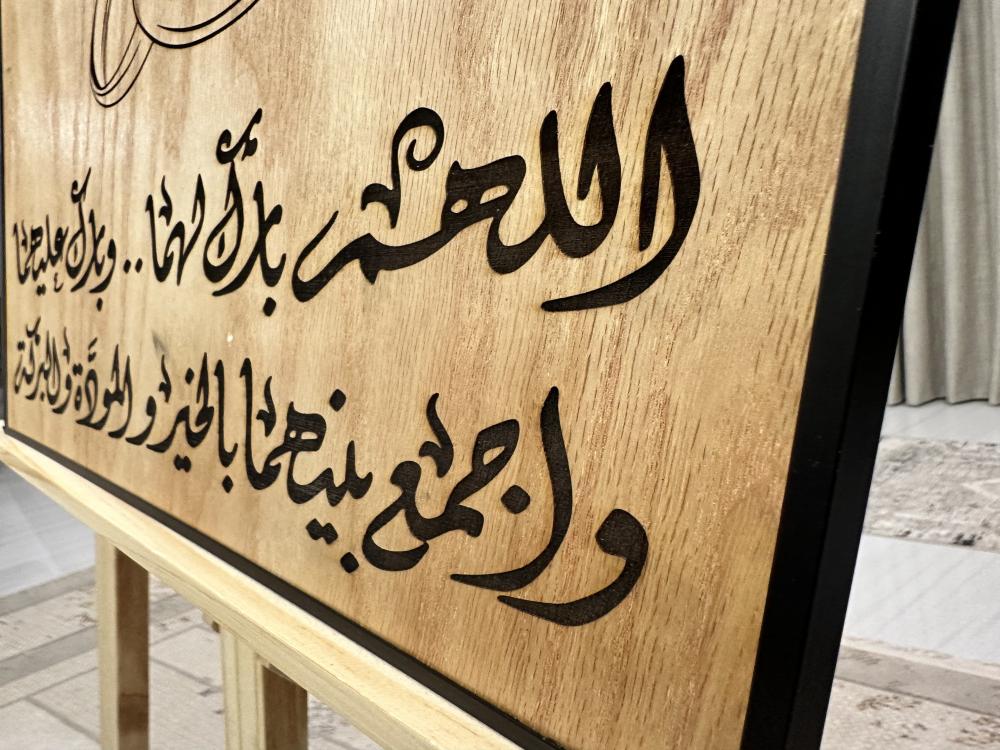 اللهم بارك لهما.. وبارك عليهما
واجمع بينهما بالخير و المودَّة والبركة